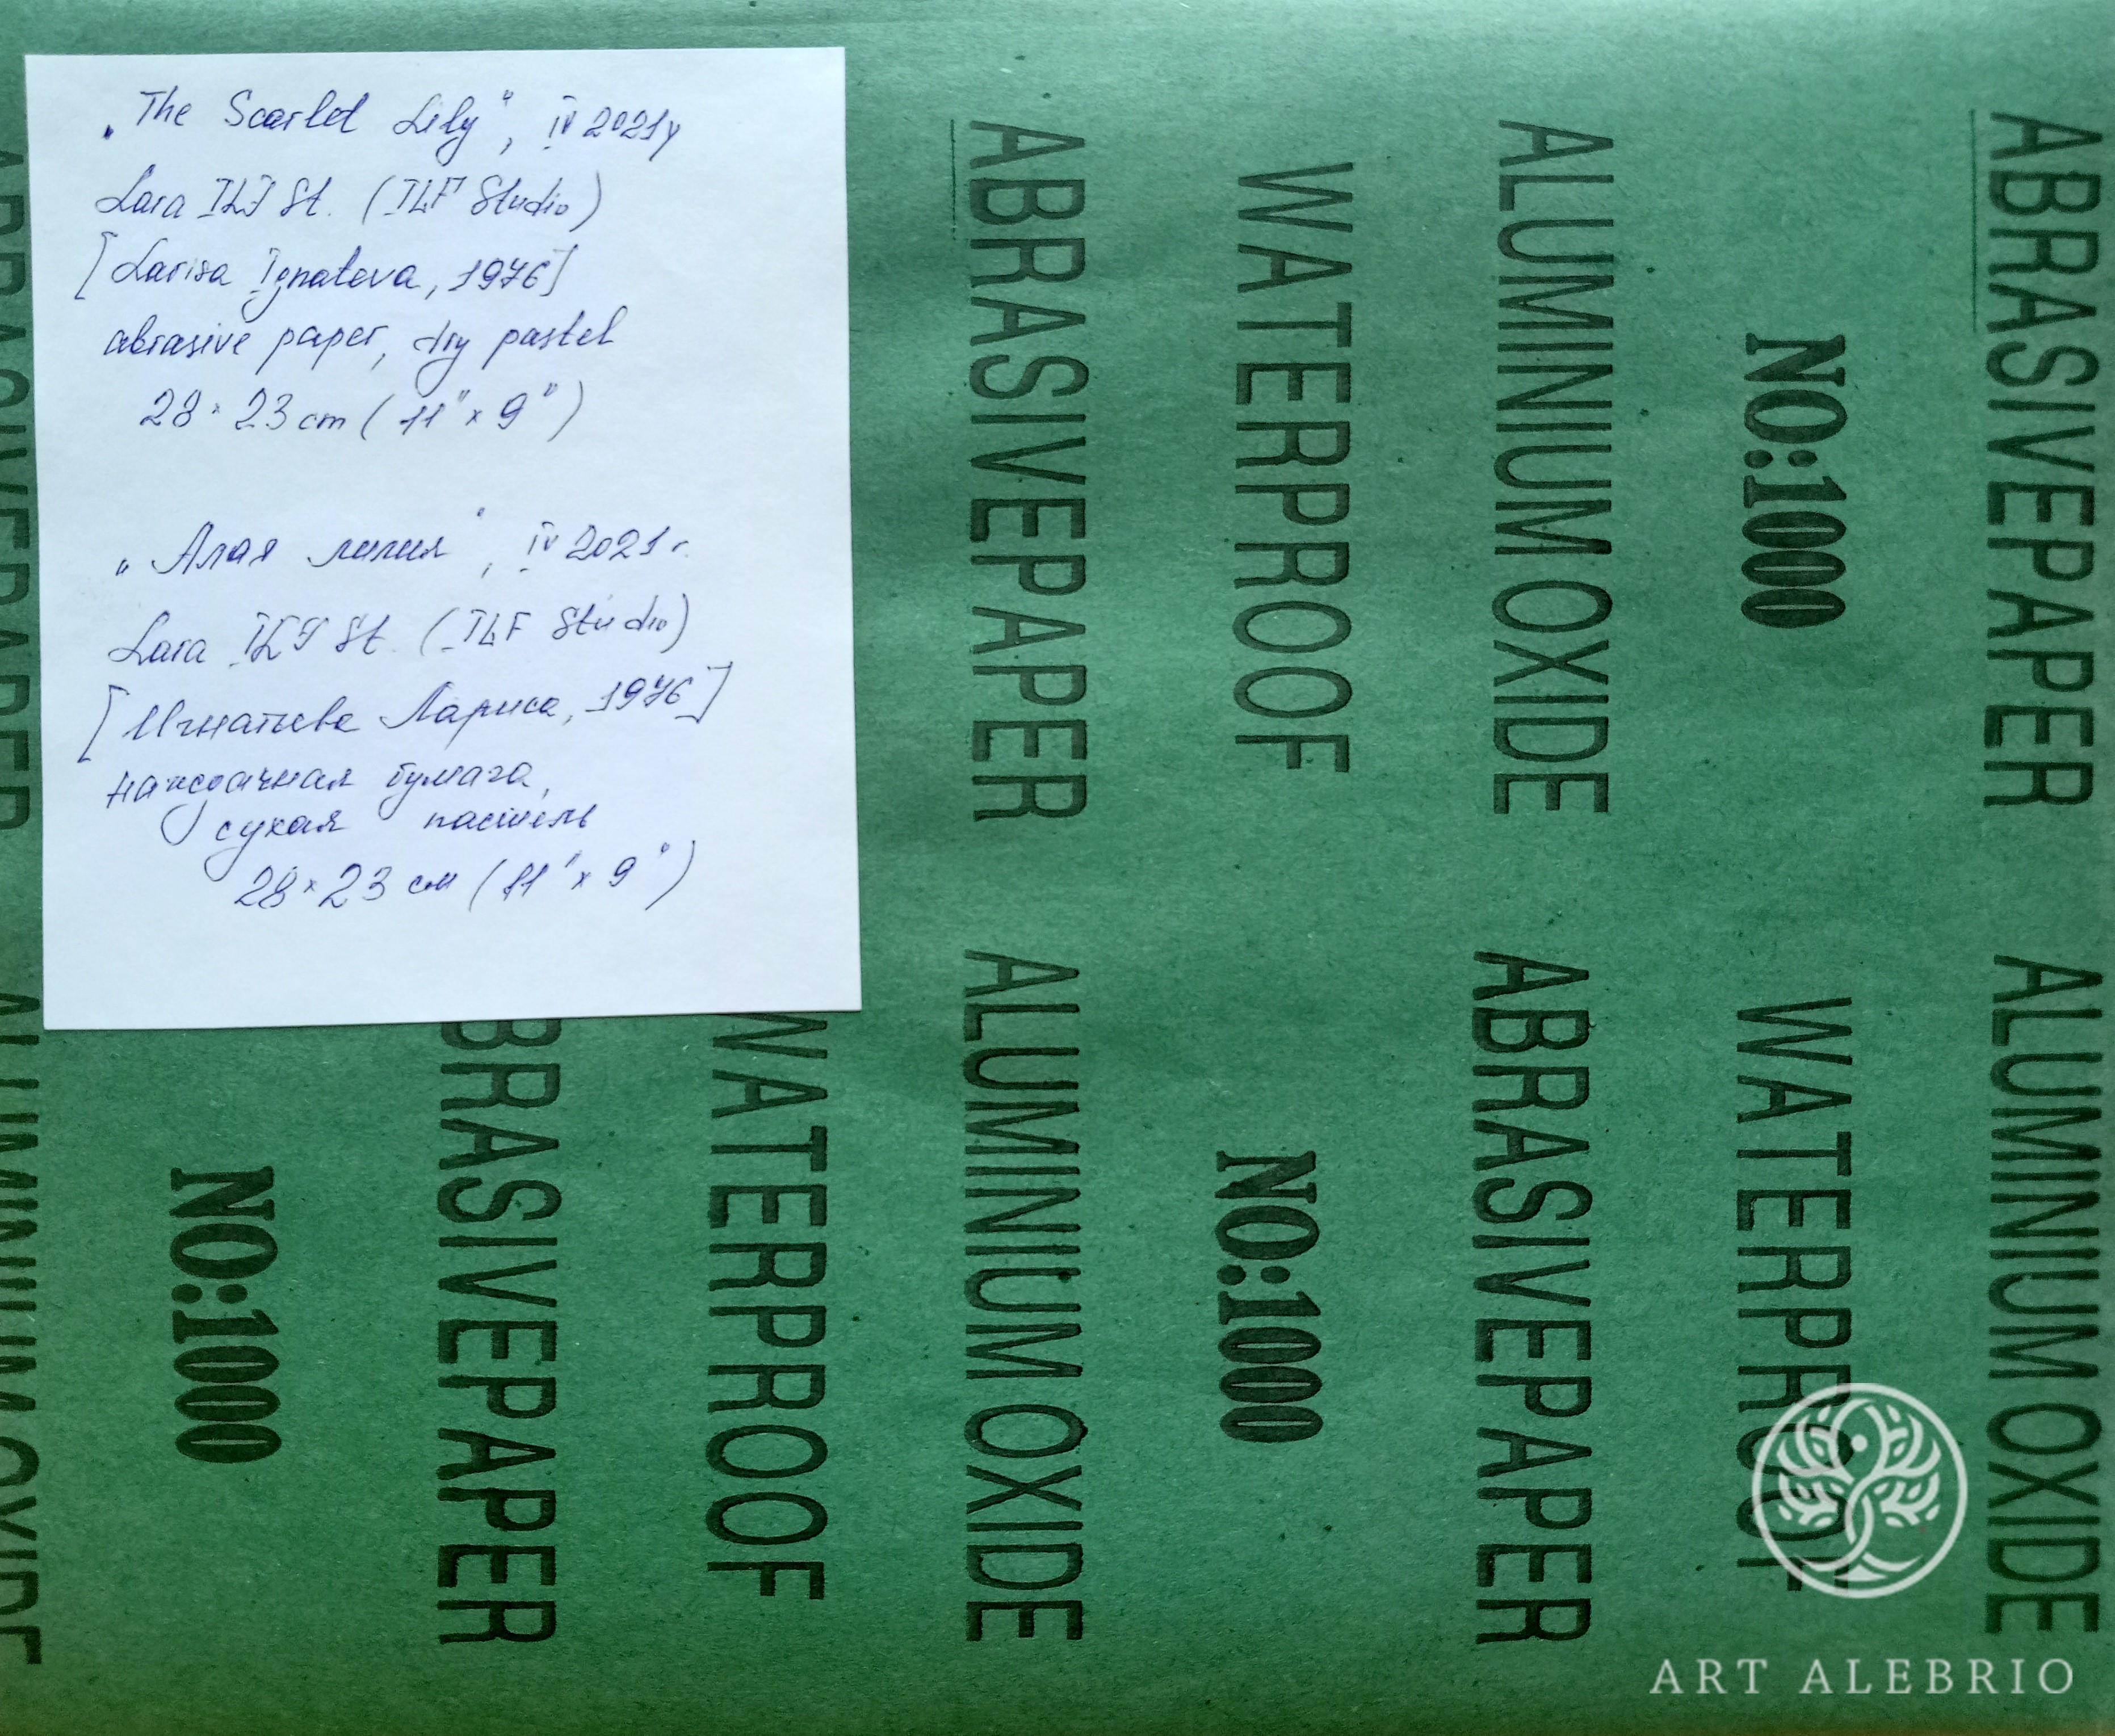 „The Scarlet Lily", IV 2021y
Lara ILF St. (ILF Studio)
[Larisa Ignateva, 1976]
abrasive paper, dry pastel
28 × 23 cm (11" × 9")
„Алая лилия", IV 2021 г.
Lara ILF St. (ILF Studio)
[Игнатьева Лариса, 1976]
наждачная бумага,
сухая пастель
28 × 23 см (11" × 9")
ABRASIVEPAPER
WATERPROOF
ALUMINIUM OXIDE
NO:1000
ABRASIVEPAPER
NO:1000
BRASIVEPAPER
WATERPROOF
ALUMINIUM OXIDE
NO:1000
ABRASIVEPAPER
WATERPROOF
ALUMINIUM OXIDE
ART ALEBRIO